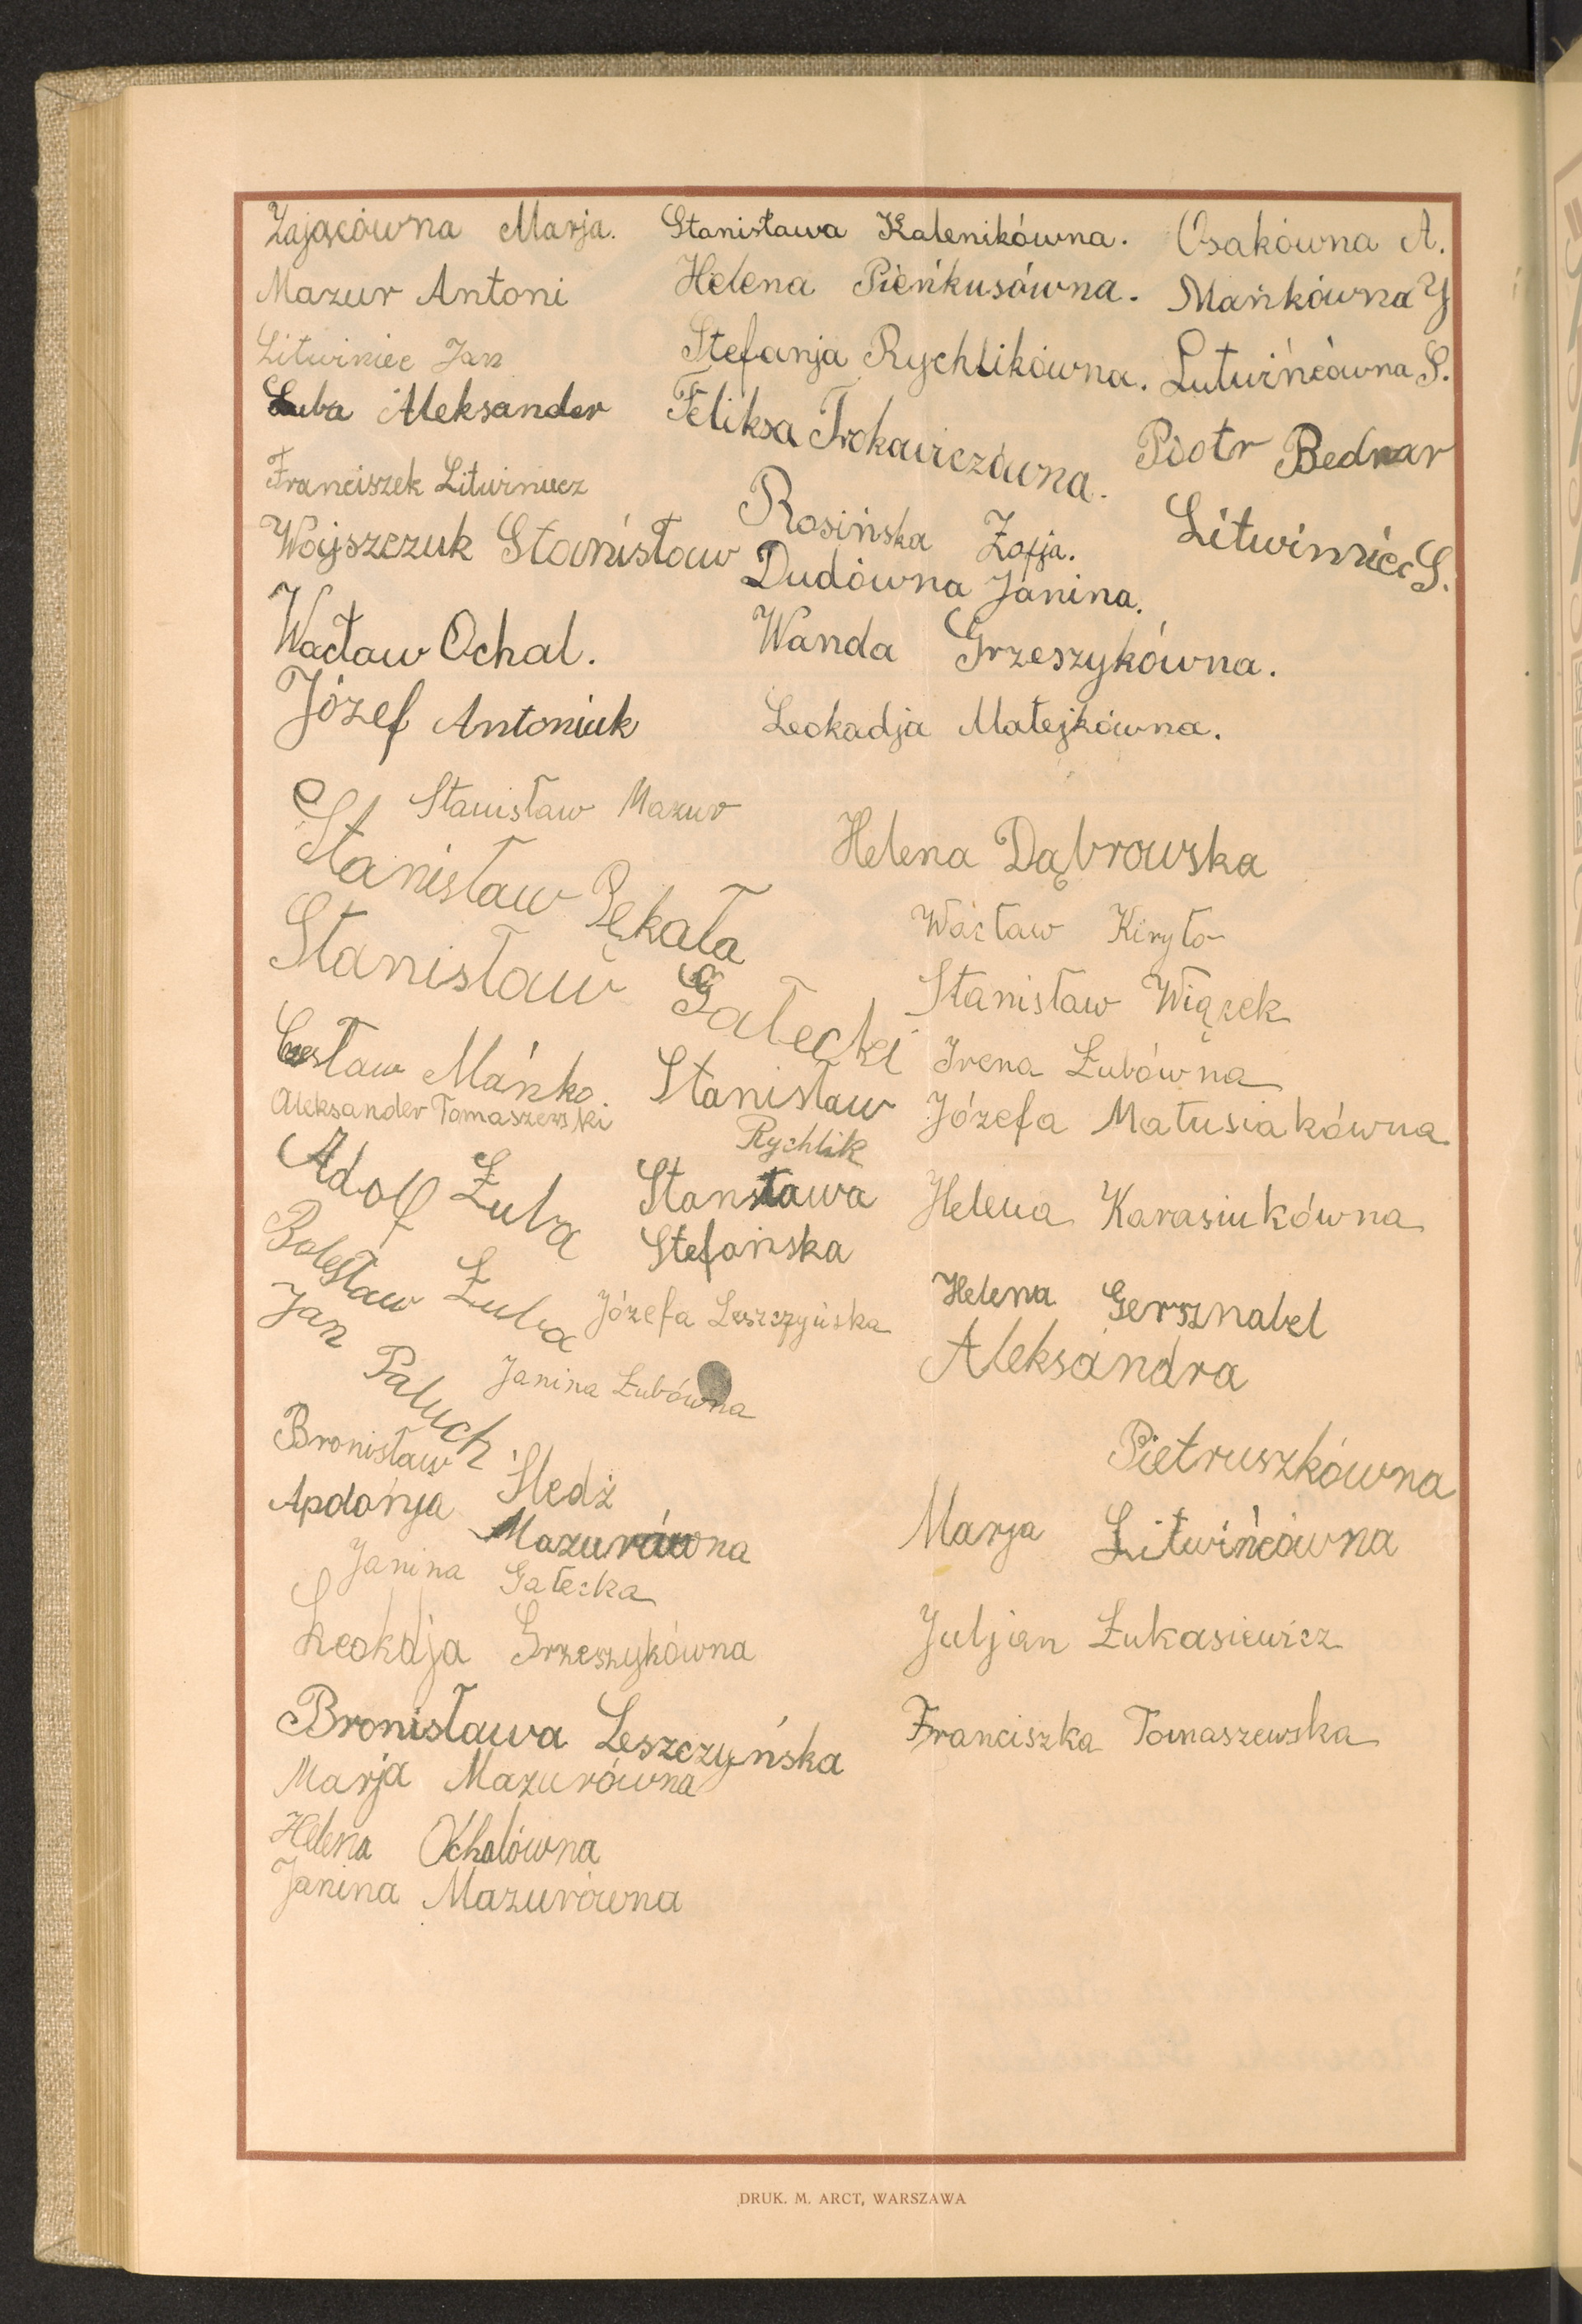 Zającówna Marja. Stanisława Kalenikówna. Osakówna A.
Mazur Antoni Helena Pieńkusówna. Mańkówna J
Litwiniec Jan Stefanja Rychlikówna. Lutwińcówna S.
Łuba Aleksander Feliksa Trokawiczówna. Piotr Bednar
Franciszek Litwiniucz Rosińska Zofja. Litwiniec S.
Wojszczuk Stanisław Dudówna Janina.
Wacław Ochal. Wanda Grzeszykówna.
Józef Antoniuk Leokadja Matejkówna.
Stanisław Mazur
Stanisław Pękała Helena Dąbrowska
Stanisław Gałecki Wacław Kiryło
Stanisław Wiącek
Czesław Mańko. Stanisław Rychlik Irena Łubówna
Aleksander Tomaszewski Józefa Matusiakówna
Adolf Łuba Stansława Helena Karasiukówna
Stefańska
Bolesław Łuba Józefa Leszczyńska Helena Gersznabel
Jan Paluch Janina Łubówna Aleksandra
Pietruszkówna
Bronisław Śledź
Apolonja Mazurówna Marja Litwińcówna
Janina Gałecka
Leokdja Grzeszykówna Juljan Łukasiewicz
Bronisława Leszczyńska Franciszka Tomaszewska
Marja Mazurówna
Helena Ochalówna
Janina Mazurówna
DRUK. M. ARCT, WARSZAWA